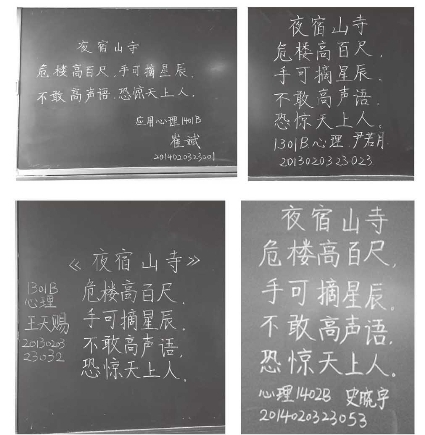 夜宿山寺
危楼高百尺,手可摘星辰.
不敢高声语,恐惊天上人.
应用心理1401B
崔斌
2014020323201
夜宿山寺
危楼高百尺,
手可摘星辰.
不敢高声语,
恐惊天上人.
1301B心理 尹若月
2013020323023
《夜宿山寺》
危楼高百尺,
手可摘星辰.
不敢高声语,
恐惊天上人.
1301B
心理
王天赐
20130203
23032
夜宿山寺
危楼高百尺,
手可摘星辰.
不敢高声语,
恐惊天上人.
心理1402B 史晓宇
2014020323053